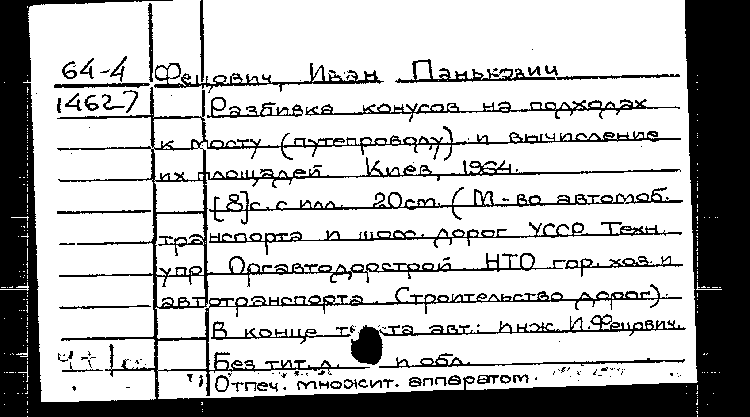 64-4 Фецович, Иван Панькович
14627 Разбивка конусов на подходах
к мосту (путепроводу) и вычисление
их площадей. Киев, 1964.
[8]с. с илл. 20см. (М-во автомоб.
транспорта и шосс. дорог УССР. Техн.
упр. Оргавтодорстрой. НТО гор. хоз. и
автотранспорта. Строительство дорог).
В конце текста авт.: инж. И. Фецович.
Без тит. л. и обл.
Отпеч. множит. аппаратом.